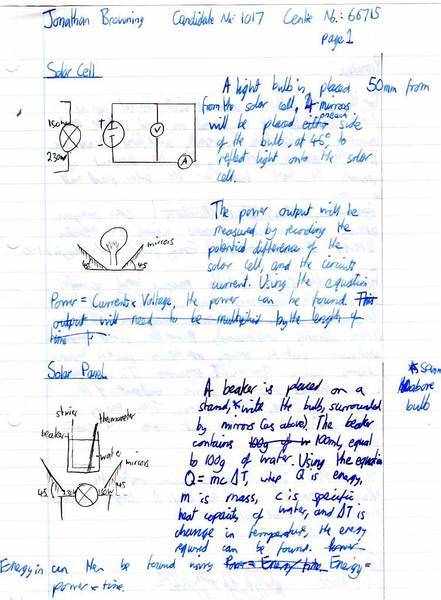 Jonathan Browning Candidate No: 1017 Centre No.: 66715
page 1
Solar Cell
A light bulb is placed 50mm from
from the solar cell, 4 mirrors
will be placed on each side
of the bulb, at 45°, to
reflect light onto the solar
cell.
150W
230V
V
A
The power output will be
measured by recording the
potential difference of the
solar cell, and the circuits
current. Using the equation
mirrors
45
45
Power = Current x Voltage, the power can be found. This
output will need to be multiplied by the length of
time
Solar Panel
* 50mm
above
bulb
A beaker is placed on a
stand, * with the bulb, surrounded
by mirrors (as above). The beaker
contains 100g of 100ml, equal
to 100g of water. Using the equation
Q = mcΔT, where Q is energy,
m is mass, c is specific
heat capacity of water, and ΔT is
change in temperature, the energy
required can be found. Power
stirrer
thermometer
beaker
water
mirrors
45
230V
150W
45
Energy in can then be found using Power = Energy / time Energy =
power x time.